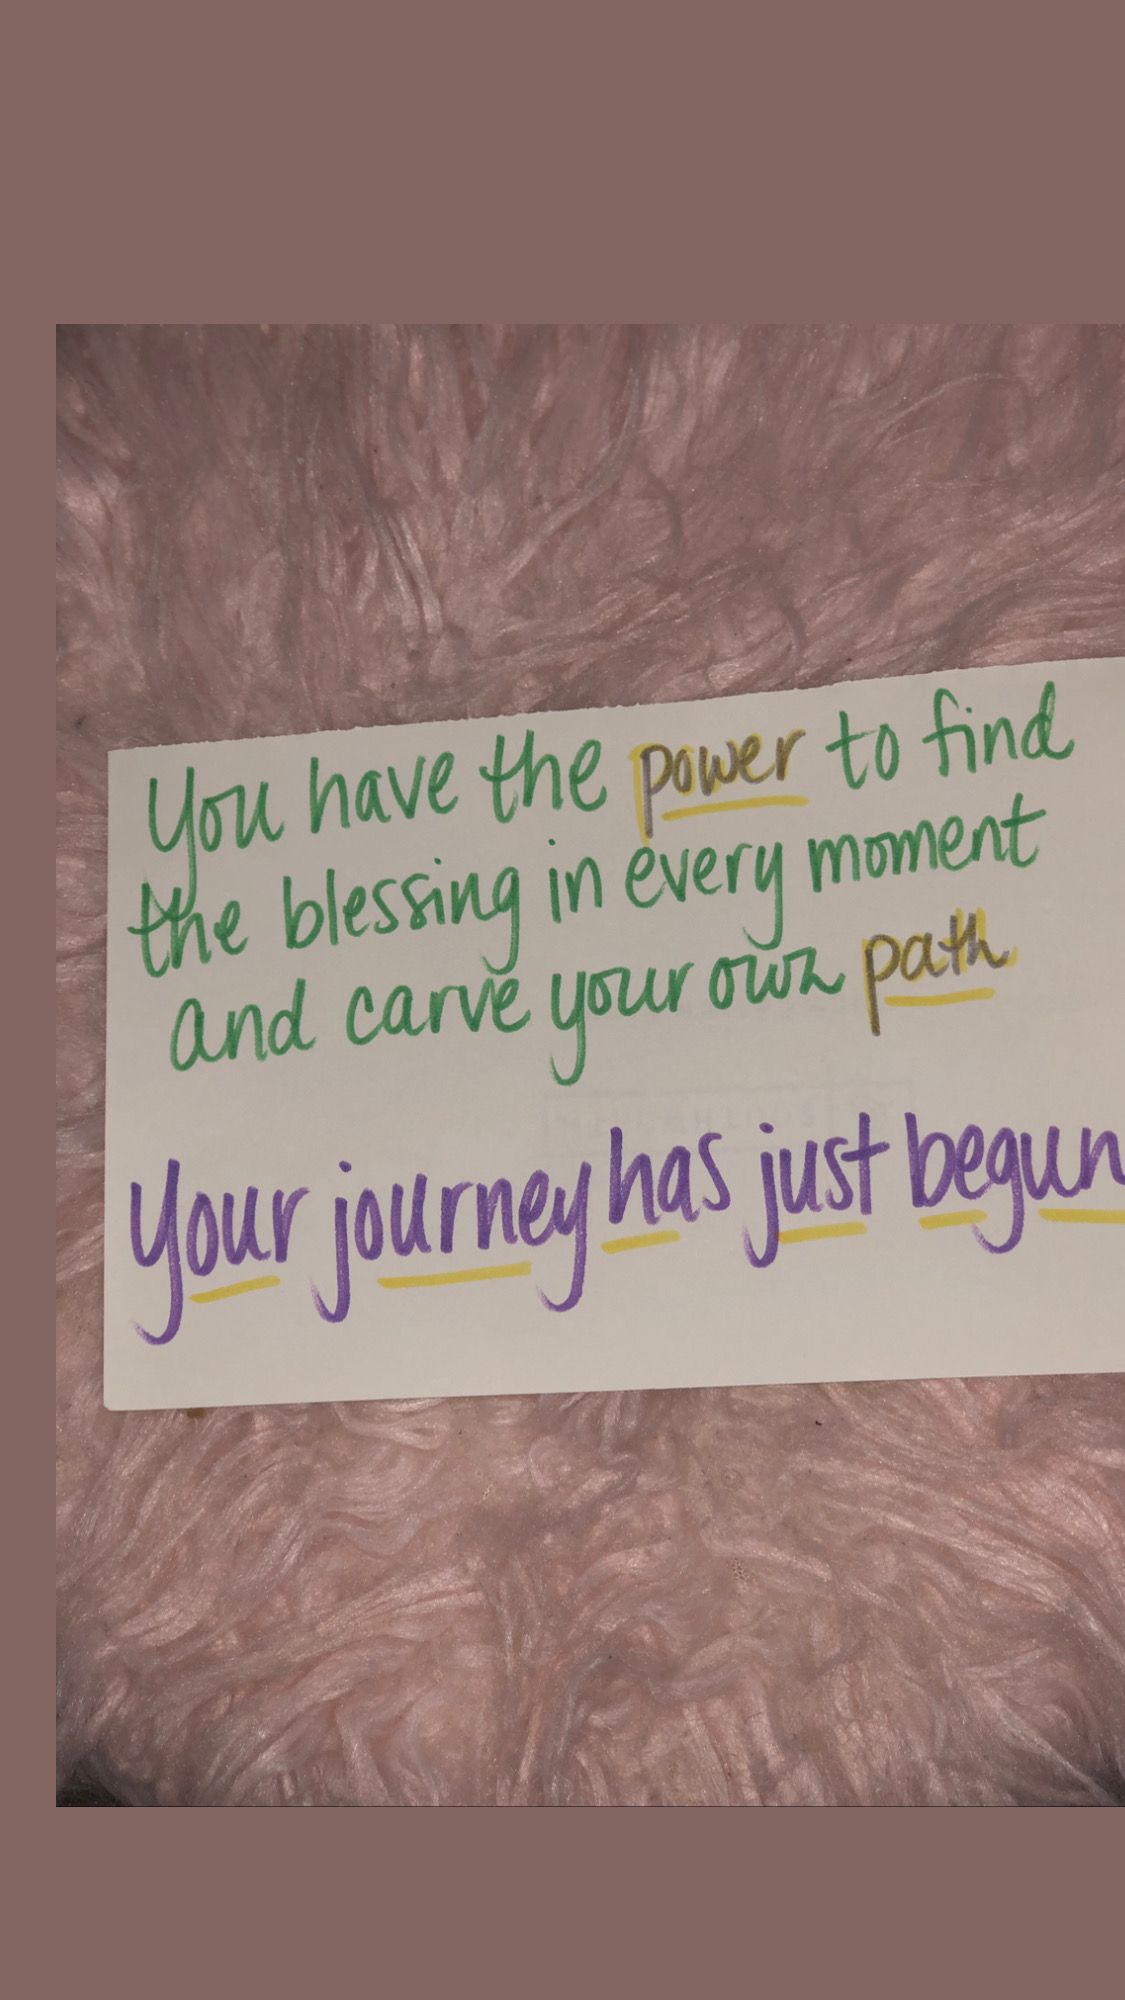 You have the power to find
the blessing in every moment
and carve your own path
Your journey has just begun